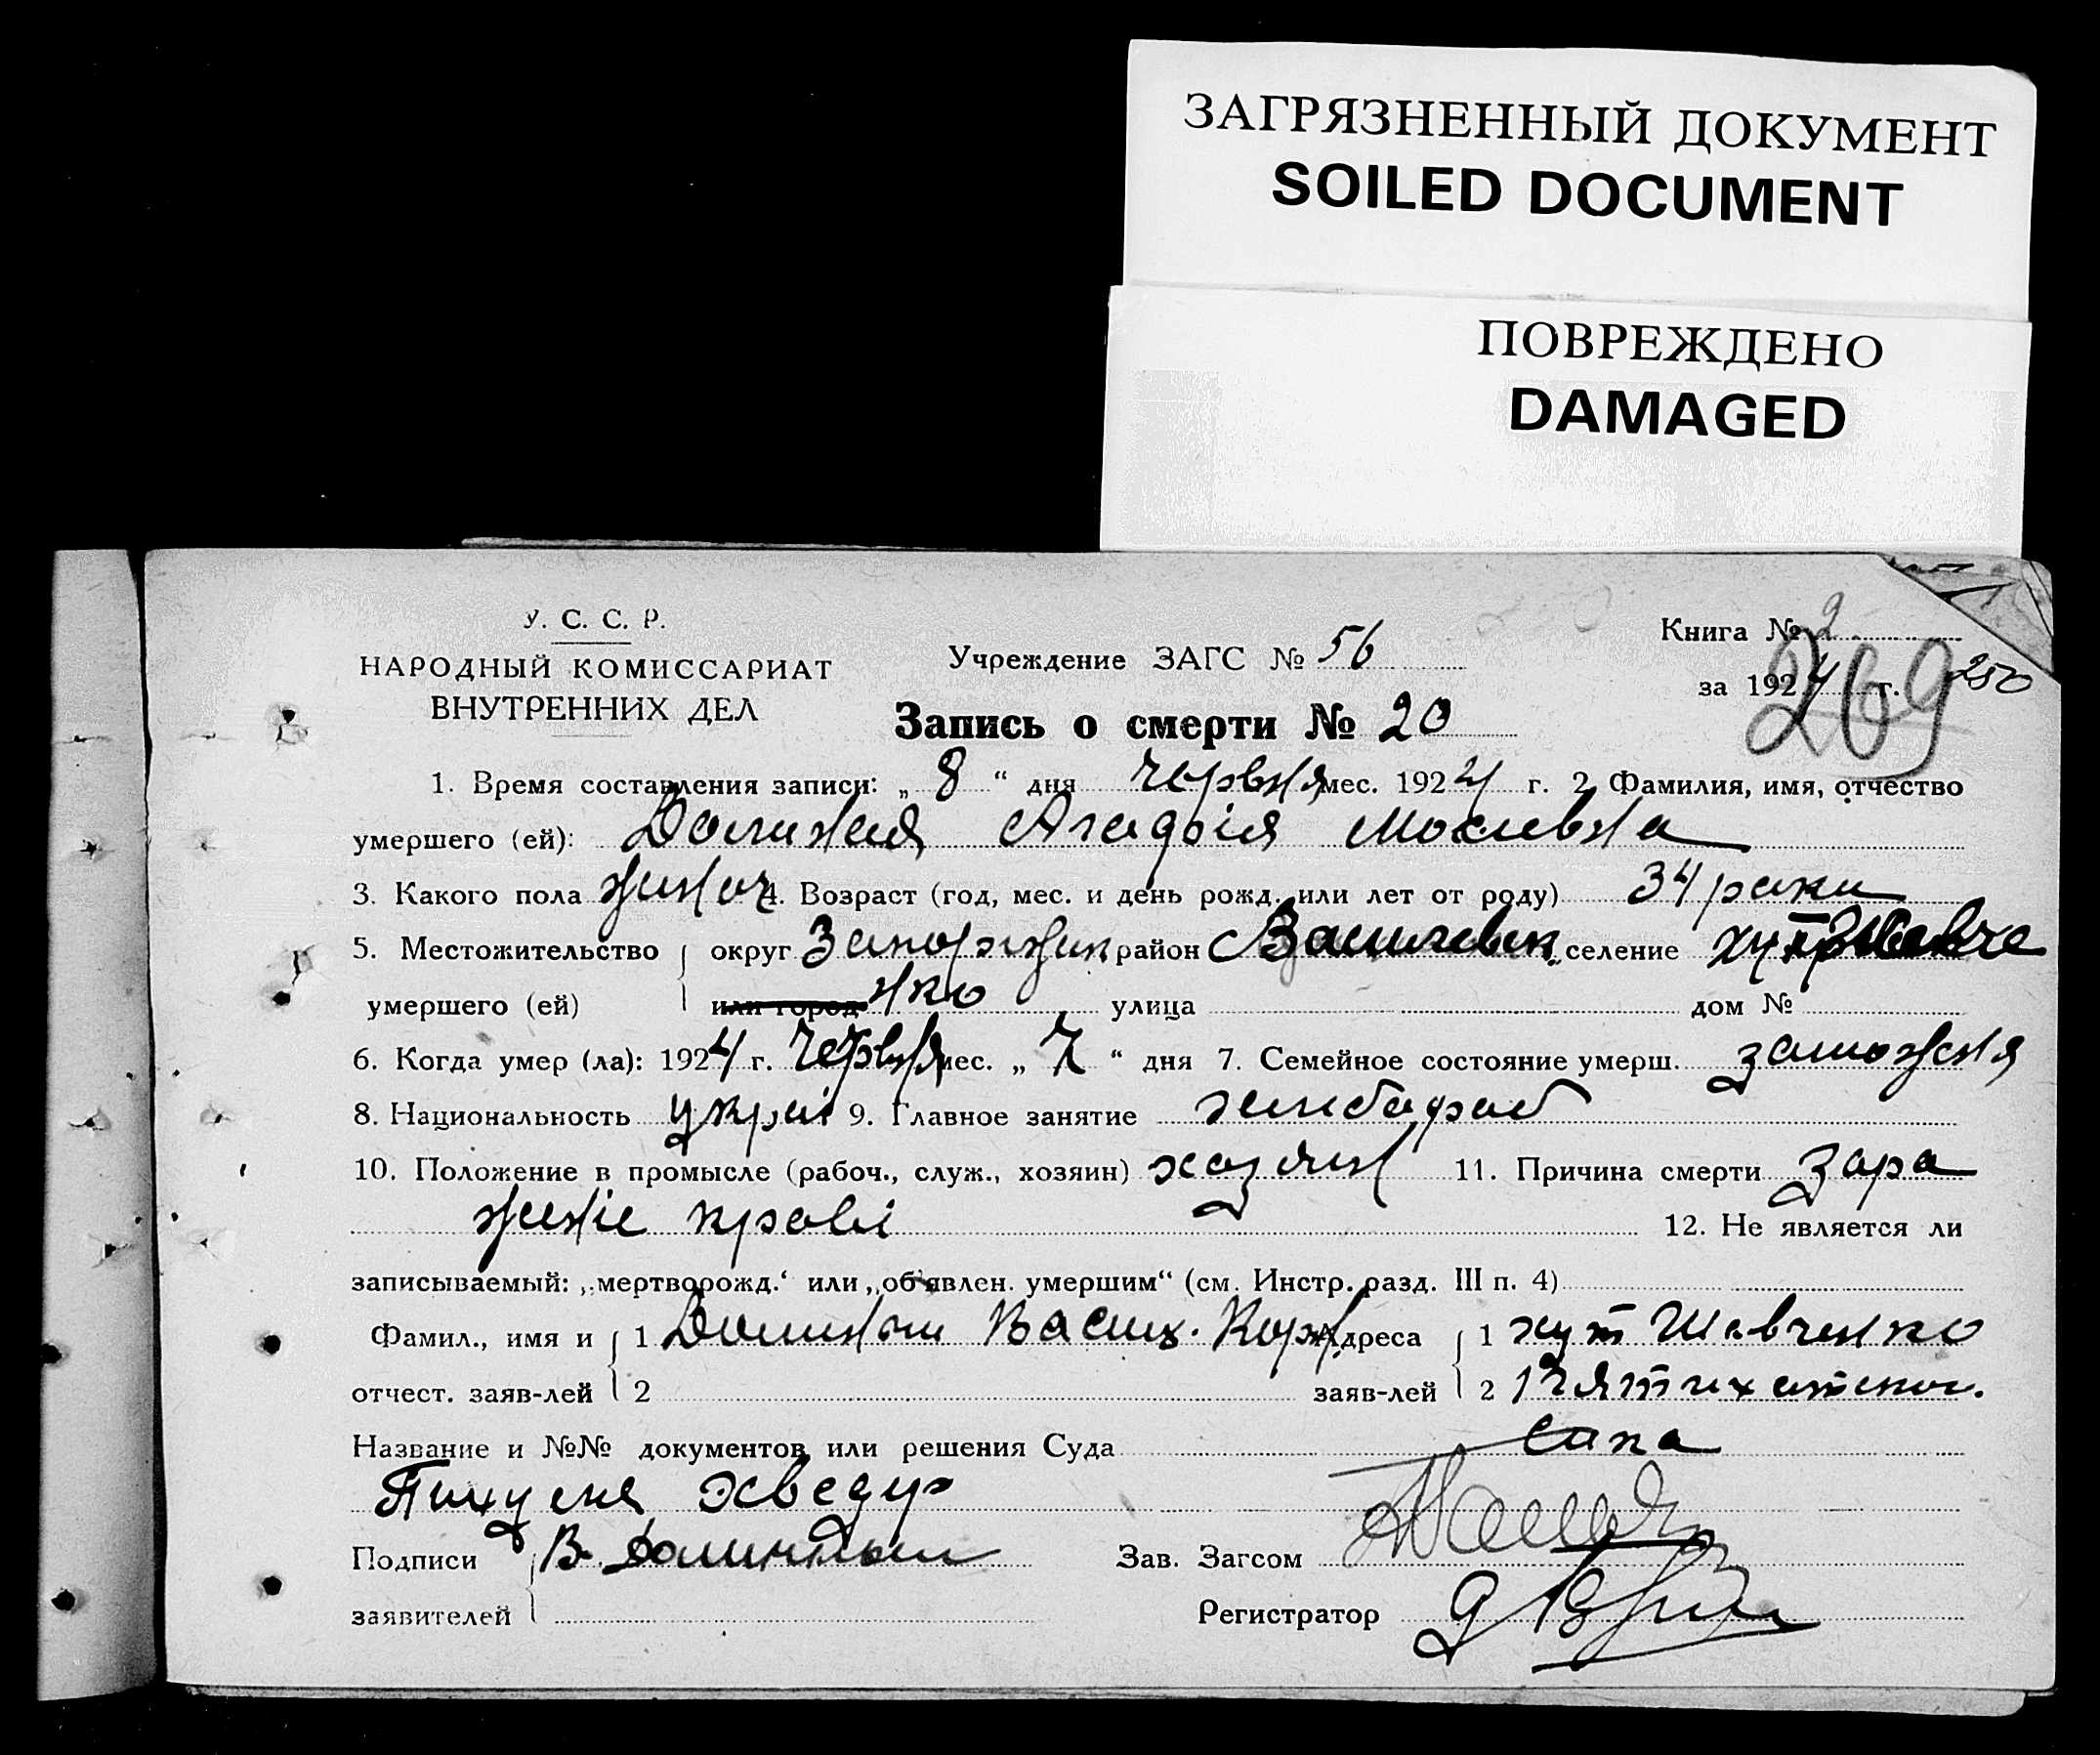 ЗАГРЯЗНЕННЫЙ ДОКУМЕНТ
SOILED DOCUMENT
ПОВРЕЖДЕНО
DAMAGED
У. С. С. Р.
НАРОДНЫЙ КОМИССАРИАТ
ВНУТРЕННИХ ДЕЛ
Учреждение ЗАГС № 56
Книга № 2
за 1924 г. 250
269
Запись о смерти № 20
1. Время составления записи: „ 8 “ дня червня мес. 1924 г. 2. Фамилия, имя, отчество
умершего (ей):
3. Какого пола жіноч 4. Возраст (год, мес. и день рожд. или лет от роду) 34 роки
5. Местожительство округ район Василевск. селение хут Шевче
умершего (ей) или город нко улица дом №
6. Когда умер (ла): 1924 г. Червня мес. „ 7 “ дня 7. Семейное состояние умерш. заможня
8. Национальность украї 9. Главное занятие хлібороб
10. Положение в промысле (рабоч., служ., хозяин) хазяин 11. Причина смерти Зара
женіе крові 12. Не является ли
записываемый: „мертворожд.‘ или „об‘явлен. умершим“ (см. Инстр. разд. III п. 4)
Фамил., имя и 1 Васил. Адреса 1 хут Шевченко
отчест. заяв-лей 2 заяв-лей 2 Пятихатськ.
Название и №№ документов или решения Суда
Подписи В. Зав. Загсом
заявителей Регистратор